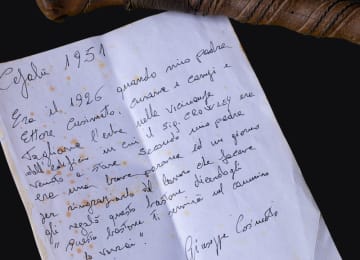 Cefalù 1951
Era il 1926 quando mio padre
Ettore Cosimato, curava i campi e
Tagliava l'erbe nelle vicinanze
dell'edificio in cui il Sig. CROWLEY era
venuto a stare. Secondo mio padre
era una brava persona ed un giorno
per ringraziarlo del lavoro che faceva
gli regalò questo bastone dicendogli
"Questo bastone ti servirà nel cammino
Giuseppe Cosimato